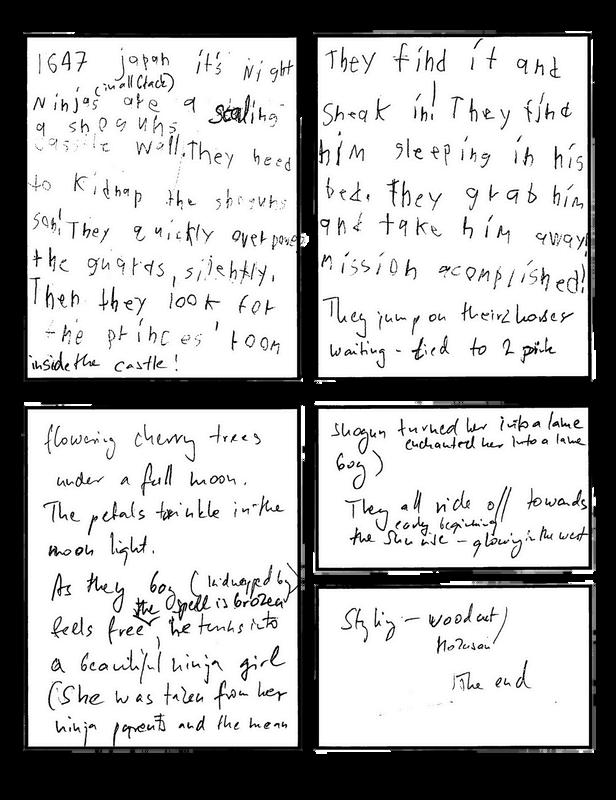 1647 japan it's night
(in all black)
Ninjas are a scaling
a shoguns
cassile wall. They need
to kidnap the shoguns
son! They quickly overpower
the guards, silently.
Then they look for
the princes' room
inside the castle!
They find it and
sneak in! They find
him sleeping in his
bed. They grab him
and take him away!
mission acomplished!
They jump on their 2 horses
waiting - tied to 2 pink
flowering cherry trees
under a full moon.
The petals twinkle in the
moon light.
As they boy (kidnapped by)
the spell is broken
feels free, he turns into
a beautiful ninja girl
(She was taken from her
ninja parents and the mean
shogun turned her into a lame
enchanted her into a lame
boy)
They all ride off towards
early beginning
the sun rise - glowing in the west
Styling - woodcut /
Hokusai
The end